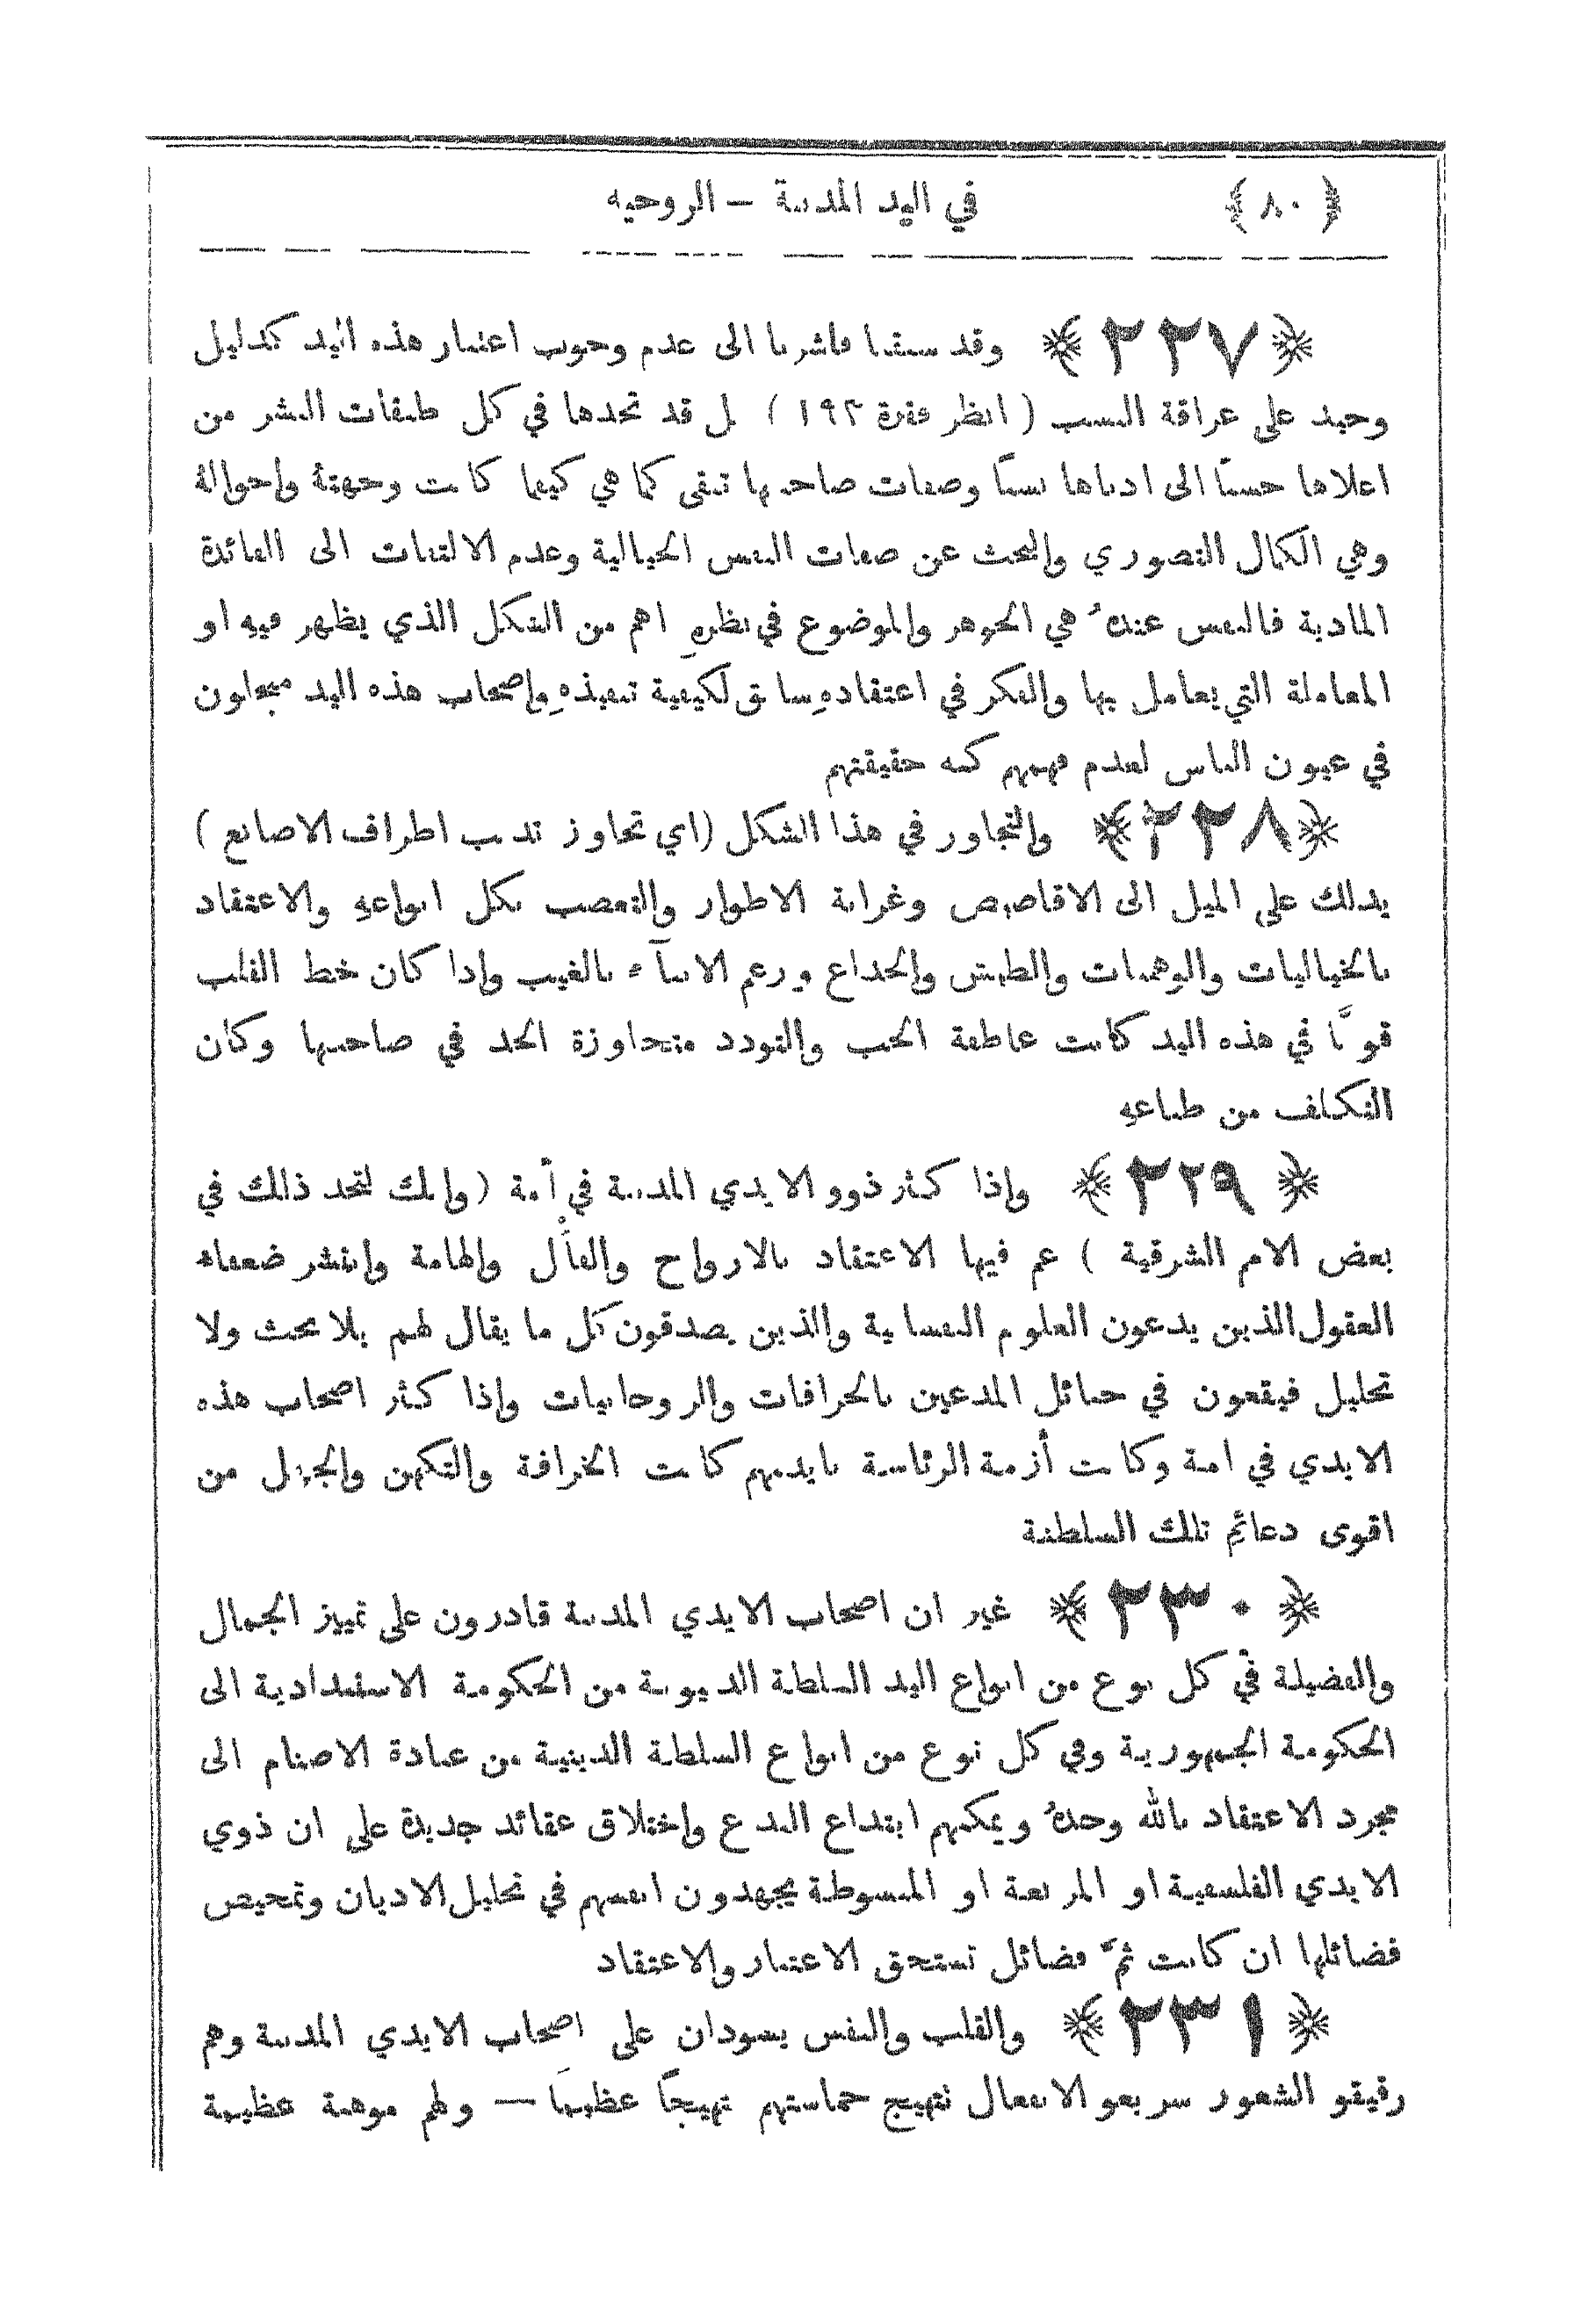 ﴿ ٨٠ ﴾ في اليد المدببة — الروحية
﴿٢٢٧﴾ وقد سبقنا فاشرنا الى عدم وجوب اعتبار هذه اليد كدليل
وحيد على عراقة النسب ( انظر فقرة ١٩٢ ) بل قد تجدها في كل طبقات البشر من
اعلاها حسبًا الى ادناها نسبًا وصفات صاحبها تبقى كما هي كيفما كانت وجهتهُ واحوالهُ
وهي الكمال التصوري والبحث عن صفات النفس الخيالية وعدم الالتفات الى الفائدة
المادية فالنفس عندهُ هي الجوهر والموضوع في نظرهِ اهم من الشكل الذي يظهر فيهِ او
المعاملة التي يعامل بها والفكر في اعتقادهِ سابق لكيفية تنفيذهِ واصحاب هذه اليد مبجلون
في عيون الناس لعدم فهمهم كنه حقيقتهم
﴿٢٢٨﴾ والتجاوز في هذا الشكل (اي تجاوز تدبب اطراف الاصابع )
يدلك على الميل الى الاقاصيص وغرابة الاطوار والتعصب بكل انواعهِ والاعتقاد
بالخياليات والوهميات والطيش والخداع وزعم الانبآء بالغيب واذا كان خط القلب
قويًّا في هذه اليد كانت عاطفة الحب والتودد متجاوزة الحد في صاحبها وكان
التكلف من طباعهِ
﴿ ٢٢٩ ﴾ واذا كثر ذوو الايدي المدببة في أمة ( وانك لتجد ذالك في
بعض الامم الشرقية ) عم فيها الاعتقاد بالارواح والفأْل والهامة وانتشر ضعفاء
العقول الذين يدعون العلوم النفسانية والذين يصدقون كل ما يقال لهم بلا بحث ولا
تحليل فيقعون في حبائل المدعين بالخرافات والروحانيات واذا كثر اصحاب هذه
الايدي في امة وكانت أزمة الرئاسة بايديهم كانت الخرافة والتكهن والجهل من
اقوى دعائمِ تلك السلطنة
﴿ ٢٣٠ ﴾ غير ان اصحاب الايدي المدببة قادرون على تمييز الجمال
والفضيلة في كل نوع من انواع اليد السلطة الدنيوية من الحكومة الاستبدادية الى
الحكومة الجمهورية وفي كل نوع من انواع السلطة الدينية من عبادة الاصنام الى
مجرد الاعتقاد بالله وحدهُ ويمكنهم ابتداع البدع واختلاق عقائد جديدة على ان ذوي
الايدي الفلسفية او المربعة او المبسوطة يجهدون انفسهم في تحليل الاديان وتمحيص
فضائلها ان كانت ثمَّ فضائل تستحق الاعتبار والاعتقاد
﴿ ٢٣١ ﴾ والقلب والنفس يسودان على اصحاب الايدي المدببة وهم
رقيقو الشعور سريعو الانفعال تتهيج حماستهم تهيجًا عظيمًا — ولهم موهبة عظيمة